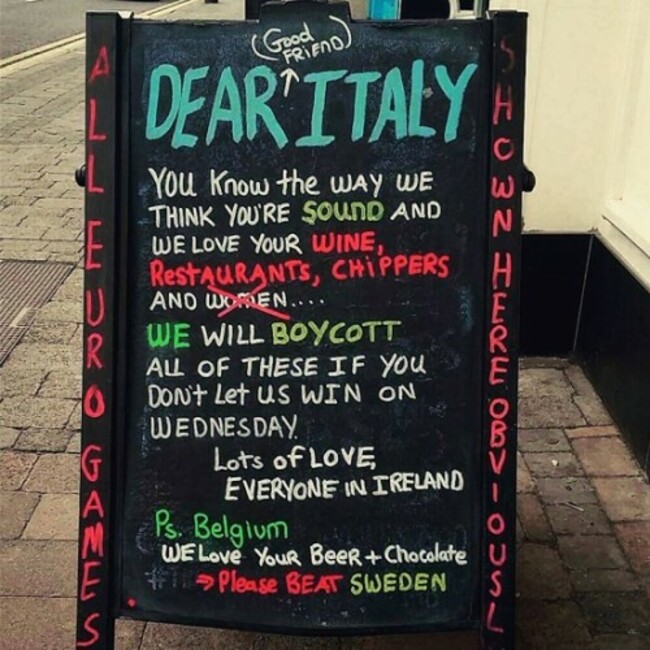 (Good
FRIEND)
DEAR ↑ ITALY
YOU KNOW the WAY WE
THINK YOU'RE SOUND AND
WE LOVE YOUR WINE,
RESTAURANTS, CHIPPERS
AND WOMEN....
WE WILL BOYCOTT
ALL OF THESE IF YOU
DON'T Let US WIN ON
WEDNESDAY.
Lots of LOVE,
EVERYONE IN IRELAND
Ps. Belgium
WE Love Your Beer + Chocolate
→ Please BEAT SWEDEN
ALL EURO GAMES
SHOWN HERE OBVIOUSL